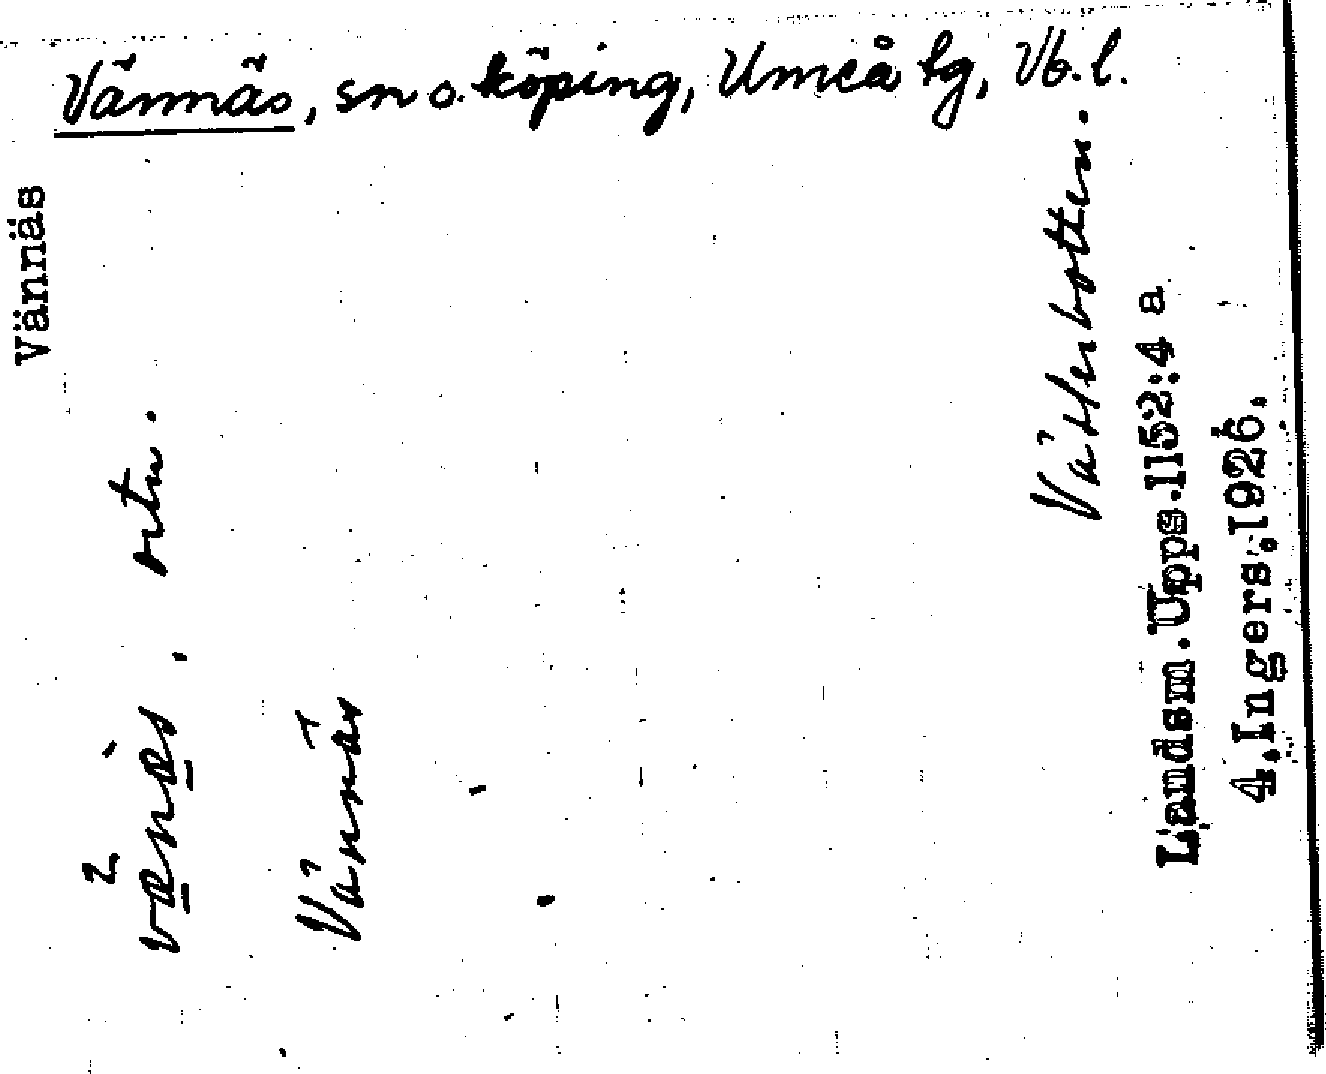 Vännäs, sn o. köping, Umeå tg, Vb.l.
Vännäs
vænæs, ortn.
Vännäs
Västerbotten.
Landsm.Upps.1152:4 a
4.Ingers.1926.